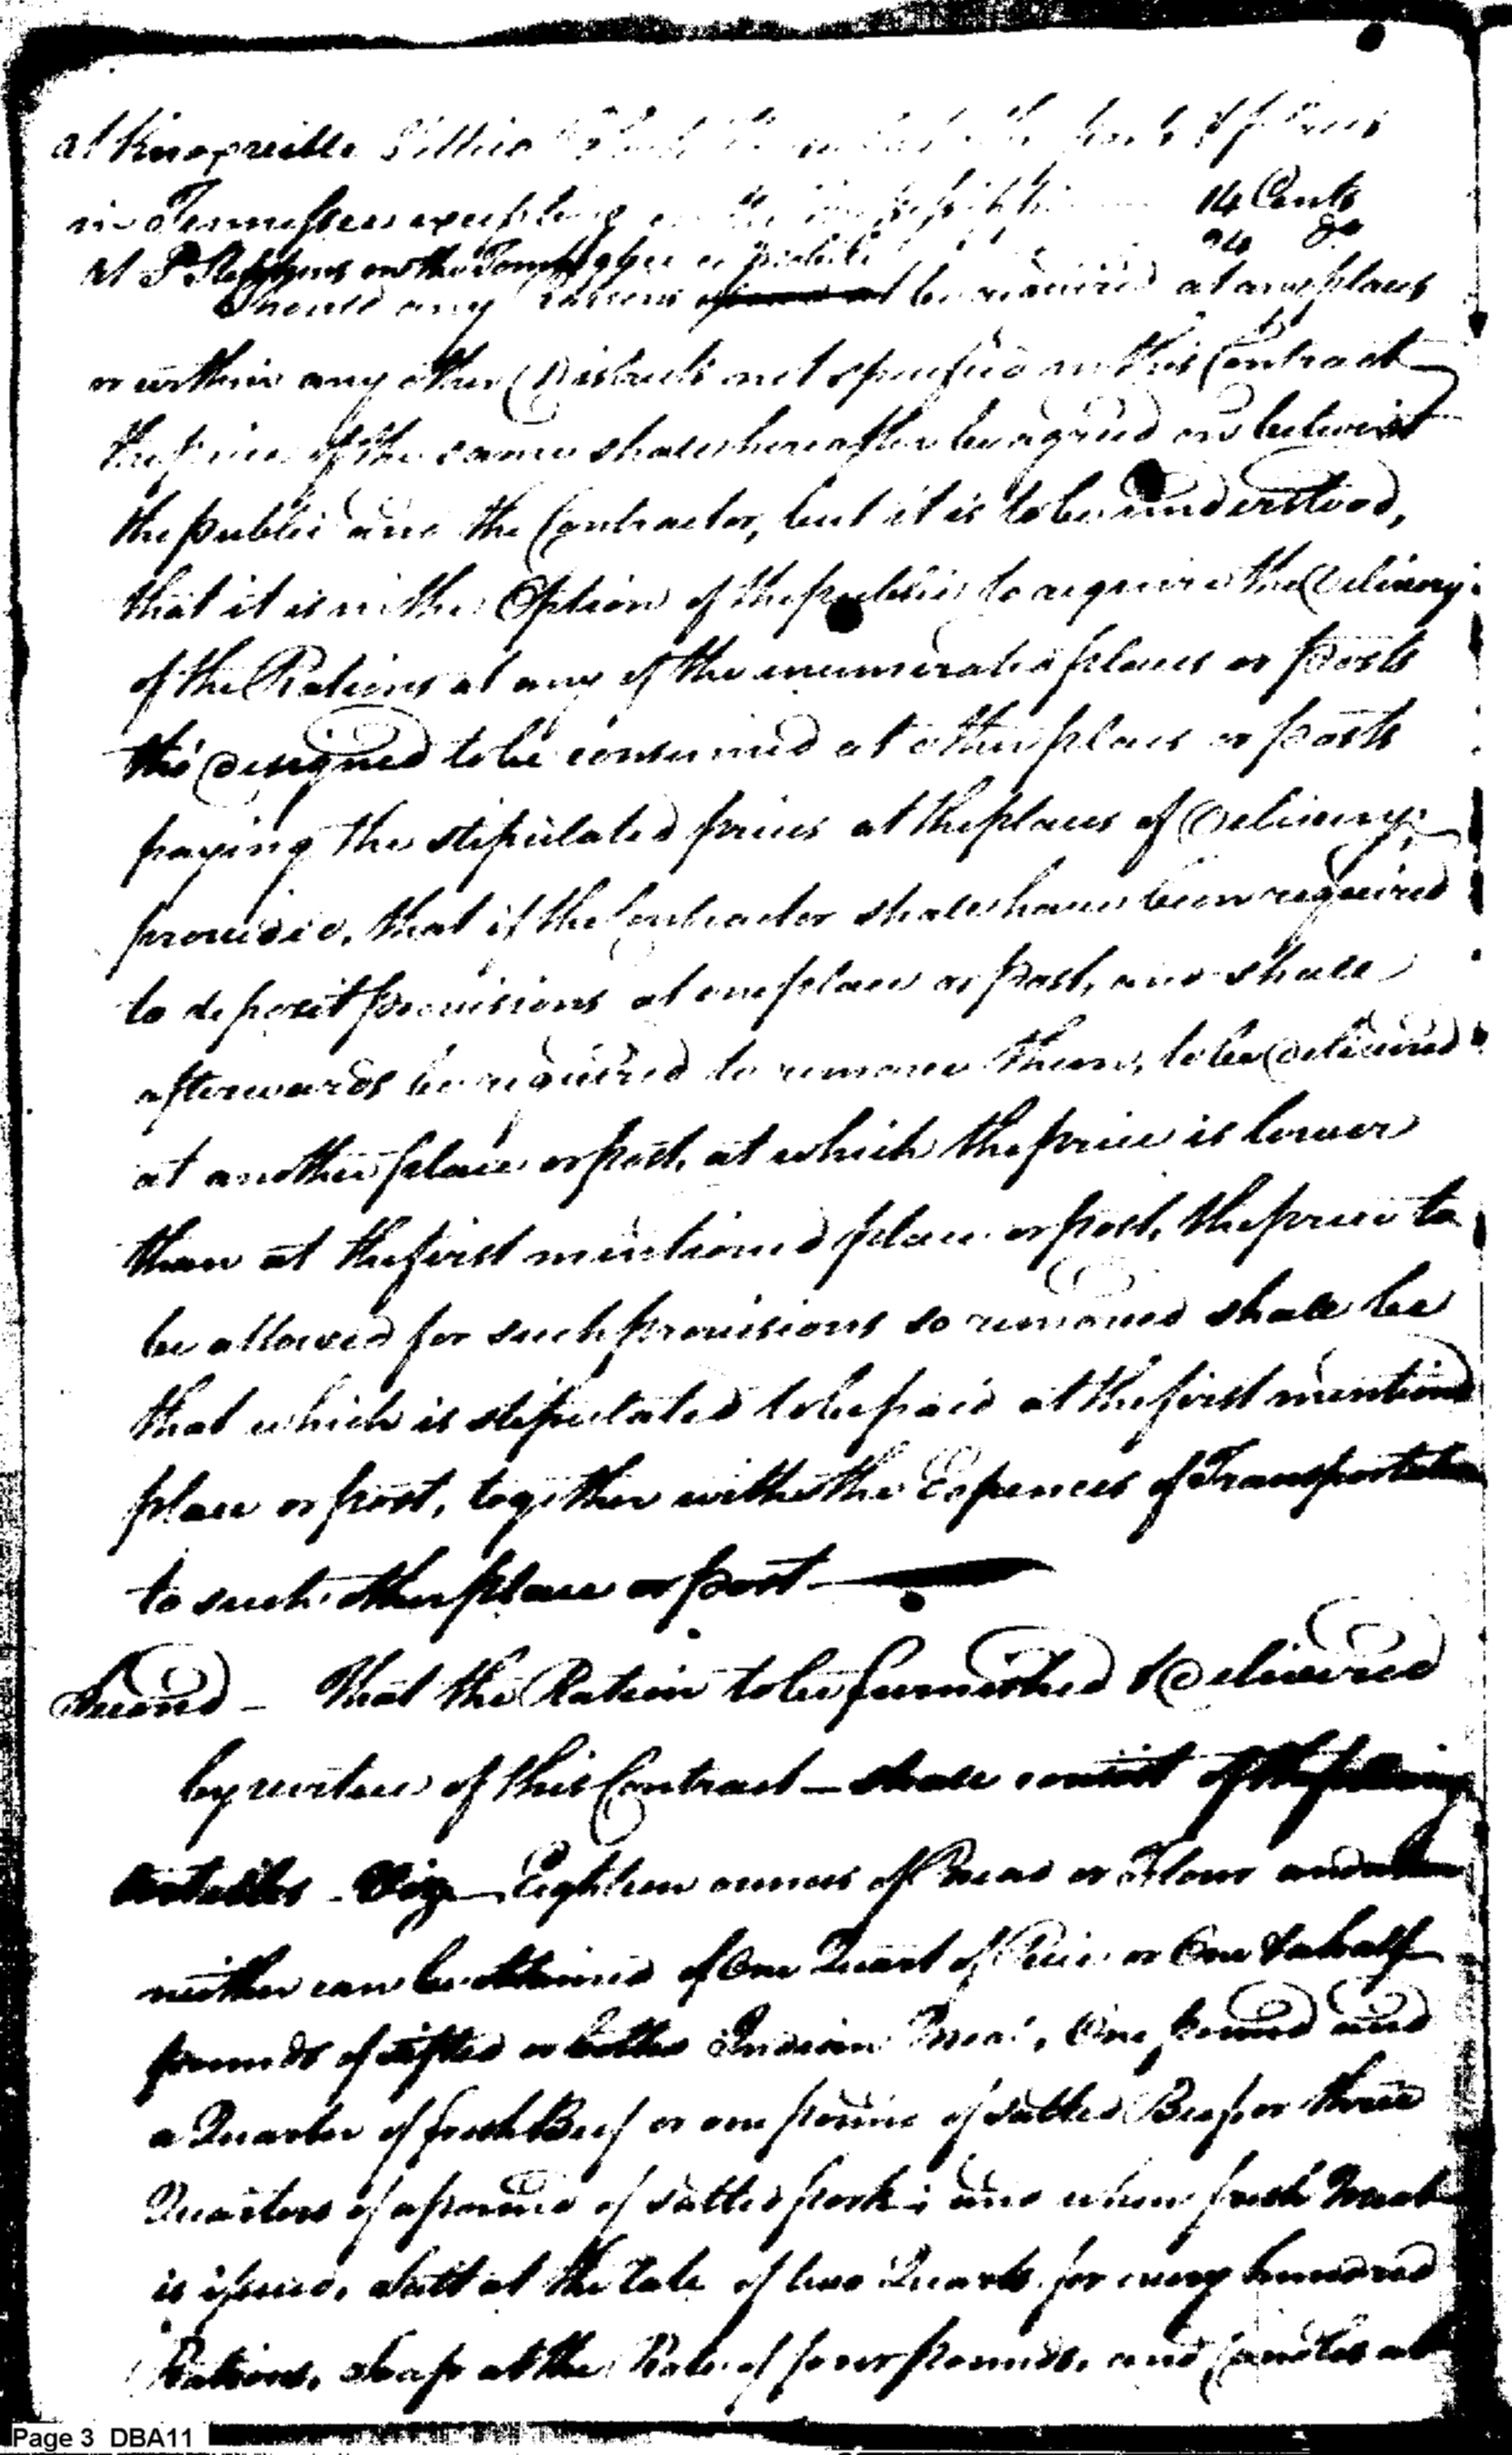 at Knoxville Tellico
in Tennessee excepting 14 Cents
at St Stephens on the Tombigbee or Mobile 24 do
Should any Rations be required at any places
or within any other Districts not specified in this Contract
the price of the same shall hereafter be agreed on betwixt
the public and the Contractor, but it is to be understood,
that it is in the Option of the public to require the Delivery
of the Rations at any of the enumerated places or posts
tho' designed to be consumed at other places or posts
paying the stipulated prices at the places of Delivery;
provided, that if the Contractor shall have been required
to deposit provisions at one place or post, and shall
afterwards be required to remove them, to be delivered
at another place or post, at which the price is lower
than at the first mentioned place or post, the price to
be allowed for such provisions so removed shall be
that which is stipulated to be paid at the first mentiond
place or post, together with the Expences of Transportation
to such other place or post
Second – That the Ration to be furnished & Delivered
by virtue of this Contract – shall consist of the following
Articles – Viz – Eighteen ounces of Bread or Flour and when
neither can be obtained of One Quart of Rice or One & a half
pounds of sifted or bolted Indian Meal, One pound and
a Quarter of fresh Beef or one pound of salted Beef or three
Quarters of a pound of salted pork; and when fresh Meat
is issued, Salt at the rate of two Quarts for every hundred
Rations, Soap at the Rate of four pounds, and Candles at
Page 3 DBA11